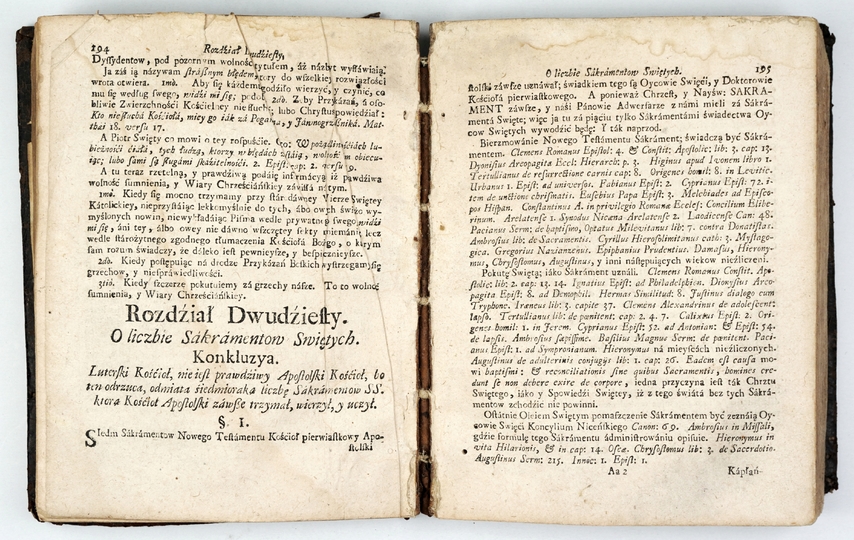 194 Rozdźiał
Dyssydentow, pod pozornym wolnośći tytułem, áż názbyt wystáwiáią.
Ja záś ią názywam strásznym błędem, ktory do wszelkiey rozwiązłości
wrota otwiera. 1mò. Aby się káżdemu godźiło wierzyć, y czynić, co
mu się według swego, widźi mi się; podoba. 2do. Z. by Przykázań, á oso-
bliwie Zwierzchnośći Kośćielney nie słuchał; lubo Chrystus powiedźiał:
Kto niesłucha Kośćiołá, miey go iák zá Pogániná, y Jáwnogrzeszniká. Mat-
thæi 18. versu 17.
A Piotr Swięty co mowi o tey rospuśćie.
biezliwośći ćiáłá, tych ludźi, ktorzy w błędách zstáią, wolność im obiecu-
iąc; lubo sami są sługami skáźitelnośći. 2. Epist: cap: 2. versu 9.
A tu teraz rzetelną, y prawdźiwą podáię informácyą iż prawdźiwa
wolność sumnienia, y Wiary Chrześćiáńskiey záwisła ná tym.
1mò. Kiedy się mocno trzymamy przy stárodáwney Wierze Swiętey
Kátolickiey, nieprzystáiąc lekkomyślnie do tych, ábo owych świżo wy-
myślonych nowin, niewykładáiąc Pismá wedle prywátnego swego widźi
mi się, áni tey, álbo owey nie dawno wszczętey sekty mniemánia, lecz
wedle stárożytnego zgodnego tłumaczenia Kośćiołá Bożgo, o ktorym
sam rozum świadczy, że dáleko iest pewnieysze, y bespiecznieysze.
2do. Kiedy postępuiąc ná drodze Przykázań Boskich wystrzegamy się
grzechow, y niespráwiedliwośći.
3tiò. Kiedy szczerze pokutuiemy zá grzechy násze. To to wolność
sumnienia, y Wiary Chrześćiáńskiey.
Rozdźiał Dwudźiesty.
O liczbie Sákrámentow Swiętych.
Konkluzya.
Luterski Kośćioł, nie iest prawdźiwy Apostolski Kośćioł, bo
ten odrzuca, odmiata śiedmioraką liczbę Sákrámentow SS.
ktorą Kośćioł Apostolski záwsze trzymał, wierzył, y uczył.
§ I.
SIedm Sákrámentow Nowego Testámentu Kośćioł pierwiastkowy Apo-
stolski
O liczbie Sákrámentow Swiętych. 195
stolski záwsze uznáwał; świadkiem tego są Oycowie Swięći, y Doktorowie
Kośćiołá pierwiastkowego. A ponieważ Chrzest, y Nayśw: SAKRA-
MENT záwsze, y nási Pánowie Adwersarze z námi mieli zá Sákrá-
mentá Swięte; więc ia tu zá pięćiu tylko Sákrámentámi świadectwa Oy-
cow Swiętych wywodźić będę: Y ták naprzod.
Bierzmowánie Nowego Testámentu Sákráment; świadczą być Sákrá-
mentem. Clemens Romanus Epistol: 4. & Constit: Apostolic; lib: 3. cap: 13.
Dionysius Arcopagita Eccl: Hierarch: p. 3. Higinus apud Ivonem libro 1.
Tertullianus de resurrectione carnis cap: 8. Origenes homil: 8. in Levitic.
Urbanus 1. Epist: ad universos. Fabianus Epist: 2. Cyprianus Epist: 72. i-
tem de unctione chrismatis. Eusebius Papa Epist: 3. Melchiades ad Episco-
pos Hispan. Constantinus A. in privilegio Romanæ Eccles: Concilium Elibe-
rinum. Arelatense 1. Synodus Nicæna Arelatense 2. Laodicense Can: 48.
Pacianus Serm: de baptismo, Optatus Milevitanus lib: 7. contra Donatistas.
Ambrosius lib: de Sacramentis. Cyrillus Hierosolimitanus cath: 3. Mystago-
gica. Gregorius Nazianzenus. Epiphanius Prudentius. Damasus, Hierony-
mus, Chrysostomus, Augustinus, y inni nástępuiących wiekow niezliczeni.
Pokutę Swiętą; iáko Sákráment uználi. Clemens Romanus Constit. Apo-
stolic; lib: 2. cap: 13. 14. Ignatius Epist: ad Philadelphien. Dionysius Arco-
pagita Epist: 8. ad Demophil. Hermas Similitud: 8. Justinus dialogo cum
Tryphone. Iræneus lib: 3. capite 37. Clemens Alexandrinus de adolescent:
lapso. Tertullianus lib: de pænitent: cap: 2. 4. 7. Calixtus Epist: 2. Ori-
genes homil: 1. in Jerem. Cyprianus Epist: 52. ad Antonian: & Epist: 54.
de lapsis. Ambrosius sæpissime. Basilius Magnus Serm: de pænitent. Paci-
anus Epist: 1. ad Sympronianum. Hieronymus ná mieyscách niezliczonych.
Augustinus de adulterinis conjugijs lib: 1. cap: 26. Eadem est causa mo-
wi baptismi: & reconciliationis sine quibus Sacramentis, homines cre-
dunt se non debere exire de corpore, iedna przyczyna iest ták Chrztu
Swiętego, iáko y Spowiedźi Swiętey, iż z tego świátá bez tych Sákrá-
mentow zchodźić nie powinni.
Ostátnie Oleiem Swiętym pomaszczenie Sákrámentem być zeznáią Oy-
cowie Swięći Koncylium Niceńskiego Canon: 69. Ambrosius in Missali,
gdźie formułę tego Sákrámentu ádministrowániu opisuie. Hieronymus in
vita Hilarionis, & in cap: 14. Oseæ. Chrysostomus lib: 3. de Sacerdotio.
Augustinus Serm: 215. Innoc: 1. Epist: 1.
Aa 2 Kápłań-